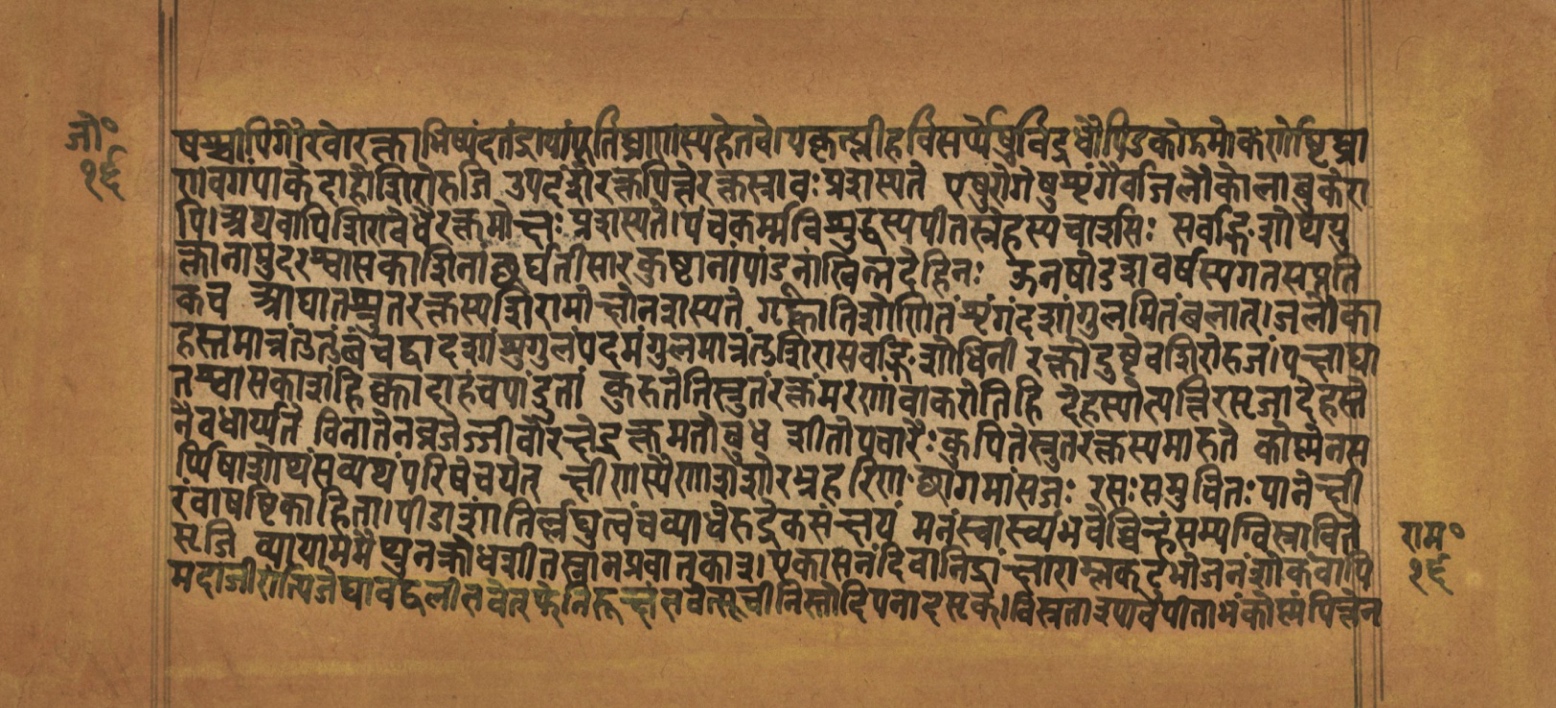 जो॰
१६
षश्चापिगौरवेरक्ताभिष्यंदतंद्रायांपूतिघ्राणास्यहेतवे। यकृत्प्लीहविसर्प्पेषुविद्रधौपिडकोद्गमे। कर्णोष्ठघ्रा
णवगपाके दाहेशिरोरुजि उपदंशेरक्तपित्तेरक्तस्रावःप्रशस्यते एषुरोगेषुशृंगैर्वाजलौकालाबुकैरा
पि। अथवापिशिरावेधैरक्तमोक्षः प्रशस्यते। पंचकर्म्मविशुद्धस्यपीतस्नेहस्यचार्शसिः सर्वाङ्गशोथयु
क्तानामुदरश्वासकाशिनां छर्द्यतीसारकुष्टानांपांडूनांस्विन्नदेहिनः ऊनषोडशवर्षस्यगतसप्तति
कच आघातस्रुतरक्तस्यशिरामोक्षोनशस्यते गृह्णातिशोणितंशृंगंदशांगुलमितंबलात्। जलौका
हस्तमात्रंतुतुंबंचद्वादशांगुलंपदमंगुलमात्रंतुशिरासर्वाङ्गशोधिनी रक्तेदुष्टेवशिरोरुजां। पक्षाघा
तश्वासकाशंहिक्कादाहंचपांडुतां कुरुतेतिस्रुतंरक्तमरणंवाकरोतिहि देहस्योत्पत्तिरसृजादेहस्ते
नैवधार्य्यते विनातेनव्रजेज्जीवोरक्षेद्रक्तमतोबुधः शीतोपचारैःकुपितेस्रुतरक्तस्यमारुते कोष्णेनस
र्प्पिषाशोथंसव्यथंपरिषेचयेत् क्षीणस्यैणशशोरभ्रहरिणछागमांसजः रसःसमुचितःपानेक्षी
रंवाषष्टिकाहिता। पीडाशांतिर्ल्लघुत्वंचव्याधेरुद्रेकसंक्षयं मनःस्वास्थ्यंभवेच्चिन्हंसम्यग्विस्रावितै
सृजि व्यायाममैथुनक्रोधशीतस्नानप्रवातकान्। एकासनंदिवानिद्रांक्षाराम्लकटुभोजनंशोकंवापि
राम॰
१६